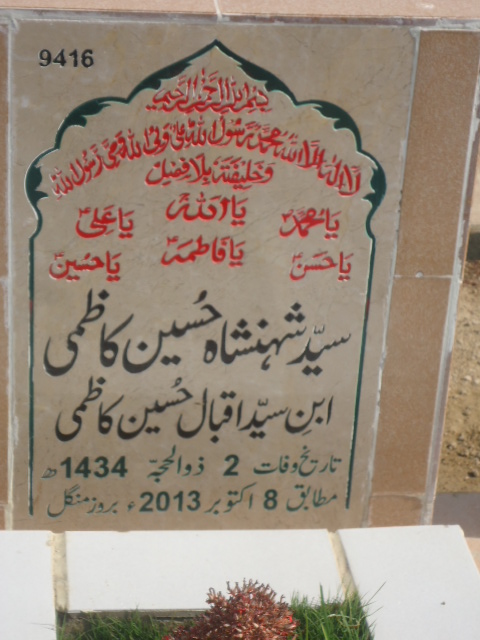 9416
بسم اللہ الرحمن الرحیم
لا الہ الا اللہ محمد رسول اللہ علی ولی اللہ وصی رسول اللہ
وخلیفتہ بلا فصل
یا اللہ
یا محمدؐ یا علیؑ
یا فاطمہؑ
یا حسنؑ یا حسینؑ
سیّد شہنشاہ حُسین کاظمی
ابنِ سیّد اقبال حُسین کاظمی
تاریخ وفات 2 ذوالحجۃ 1434ھ
مطابق 8 اکتوبر 2013ء بروز منگل